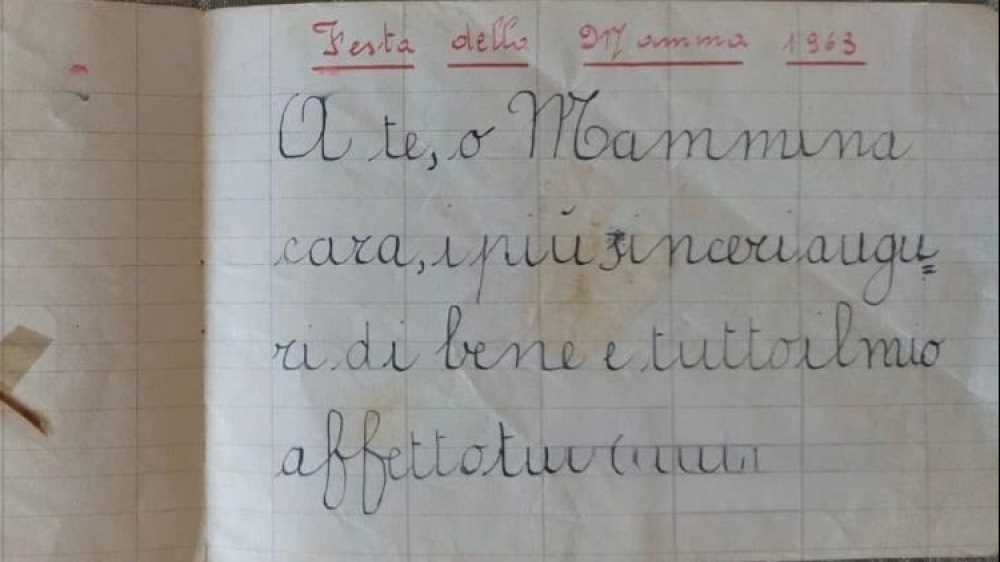 Festa della Mamma 1963
A te, o Mammina
cara, i più sinceri augu=
ri di bene e tutto il mio
affetto tuo